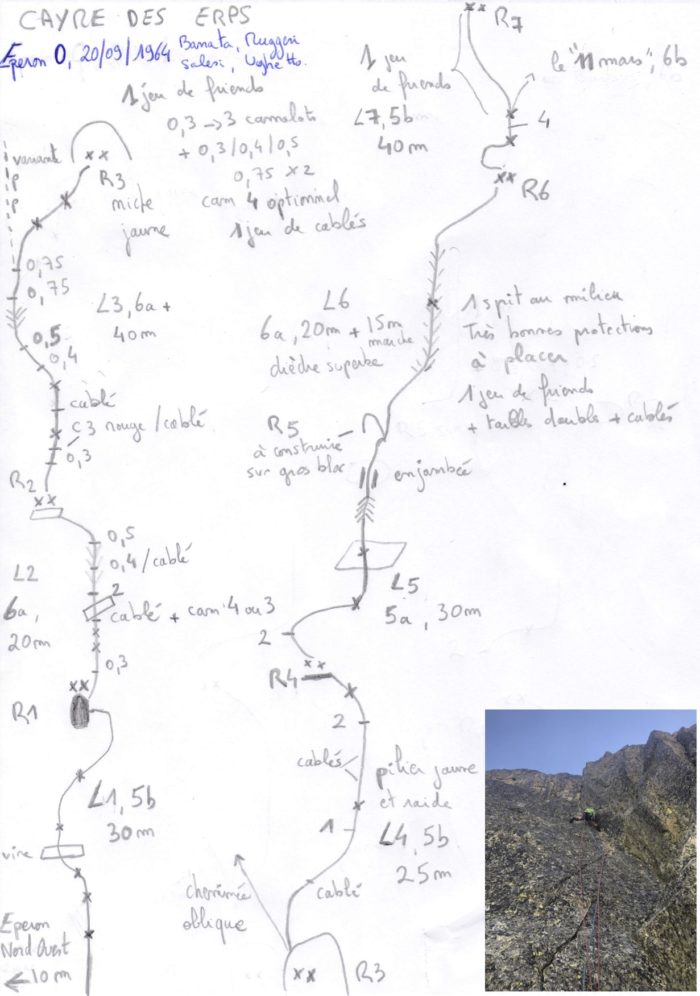 CAYRE DES ERPS
Eperon O, 20/09/1964 Barrata, Ruggeri
Saleri, Ughetto.
1 jeu de friends
0,3 → 3 camalots
+ 0,3/0,4/0,5
0,75 x2
cam 4 optionnel
1 jeu de cablés
variante
P
P
P
R3
niche
jaune
0,75
0,75
L3, 6a+
40m
0,5
0,4
cablé
C3 rouge/cablé
0,3
R2
0,5
0,4/cablé
L2
6a,
20m
2
cablé + cam 4 ou 3
0,3
R1
L1, 5b
30m
vire
Eperon
Nord Ouest
← 10m
R7
1 jeu
de friends
le "11 mars", 6b
L7, 5b
40m
4
R6
L6
6a, 20m + 15m
marche
dièdre superbe
1 spit au milieu
Très bonnes protections
à placer
1 jeu de friends
+ tailles doubles + cablés
R5
à construire
sur gros bloc
enjambée
L5
5a, 30m
2
R4
2
cablés
pilier jaune
et raide
1
L4, 5b
25m
cablé
cheminée
oblique
R3